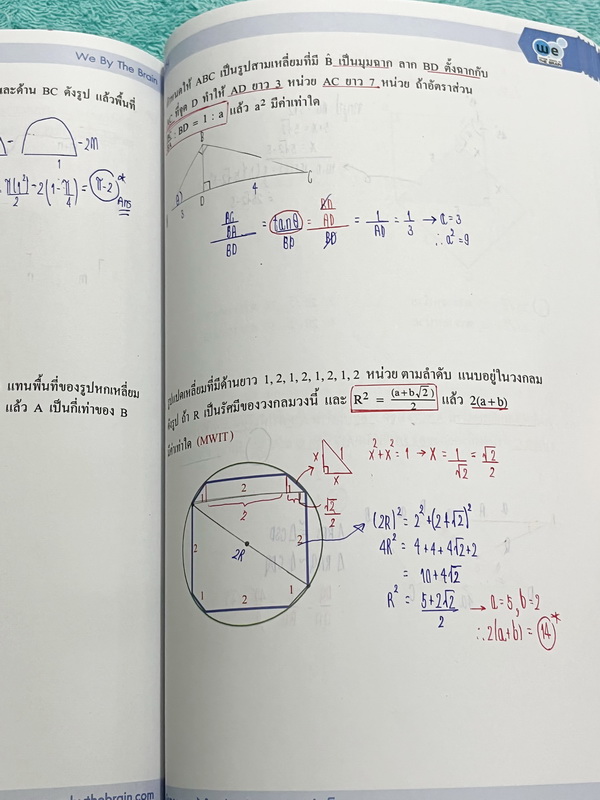 We By The Brain
และด้าน BC ดังรูป แล้วพื้นที่
- 2m
1
π(1²)/2 - 2(1 - π/4) = π-2 *
Ans
แทนพื้นที่ของรูปหกเหลี่ยม
แล้ว A เป็นกี่เท่าของ B
we
ให้ ABC เป็นรูปสามเหลี่ยมที่มี B̂ เป็นมุมฉาก ลาก BD ตั้งฉากกับ
ที่จุด D ทำให้ AD ยาว 3 หน่วย AC ยาว 7 หน่วย ถ้าอัตราส่วน
: BD = 1 : a แล้ว a² มีค่าเท่าใด
B
A
3
D
4
C
BC/BA/BD = tanθ/BD = BD/AD/BD = 1/AD = 1/3 → a=3
∴ a² = 9
รูปแปดเหลี่ยมที่มีด้านยาว 1, 2, 1, 2, 1, 2, 1, 2 หน่วย ตามลำดับ แนบอยู่ในวงกลม
ดังรูป ถ้า R เป็นรัศมีของวงกลมวงนี้ และ R² = (a+b√2)/2 แล้ว 2(a+b)
มีค่าเท่าใด (MWIT)
x 1 x
x²+x² = 1 → x = 1/√2 = √2/2
2
1 1
2
√2/2
2 2R 2
1 2 1
(2R)² = 2²+(2+√2)²
4R² = 4+4+4√2+2
= 10+4√2
R² = 5+2√2/2 → a=5, b=2
∴ 2(a+b) = 14 *